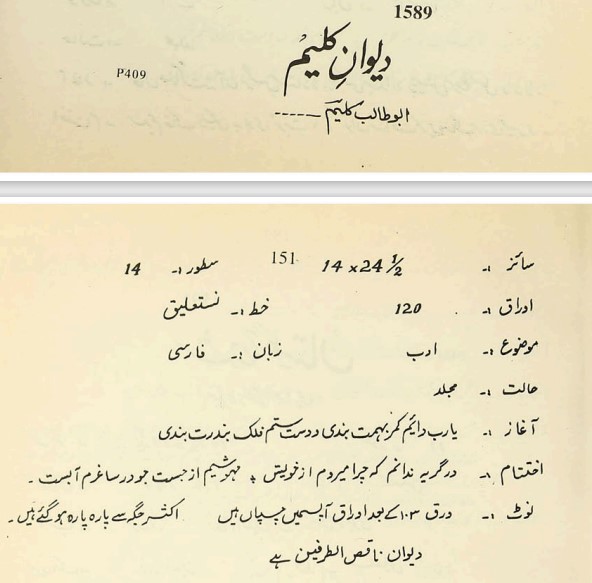 1589
دیوانِ کلیم
P409
ابوطالب کلیم -----
151
سائز :۔ 14 x 24 1/2 سطور :۔ 14
اوراق :۔ 120 خط :۔ نستعلیق
موضوع :۔ ادب زبان :۔ فارسی
حالت :۔ مجلد
آغاز :۔ یارب دایٔم کمر بہمت بندی دوست ستم فلک بندرت بندی
اختتام :۔ درگریہ ندانم کہ چرا میروم از خویش ؞ مہوشیم از جست جو در ساغرم آبست ۔
نوٹ :۔ ورق ۱۰۳ کے بعد اوراق آپسمیں چسپاں ہیں اکثر جگہ سے پارہ پارہ ہو گئے ہیں ۔
دیوان ناقص الطرفین ہے